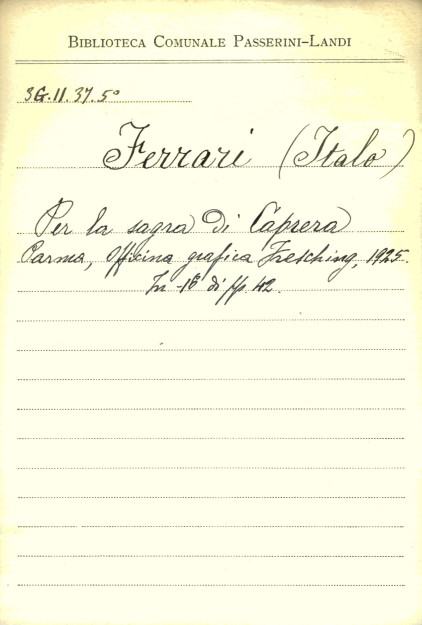 BIBLIOTECA COMUNALE PASSERINI-LANDI
3G.II.37.5°
Ferrari (Italo)
Per la sagra di Caprera
Parma, Officina grafica Fresching, 1925.
In-16 di pp. 42.